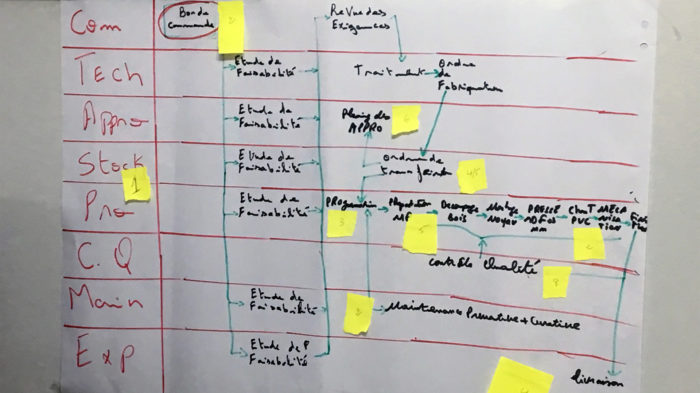 Com
Bon de
Commande
2
Revue des
Exigences
Tech
Etude de
Faisabilité
Traitement
Ordre
de
Fabrication
Appro
Etude de
Faisabilité
Planing des
APPRO
6
Stock
Etude de
Faisabilité
ordre de
transfert
4/5
1
Pro
Etude de
Faisabilité
Programation
3
Préparation
MP
5
Decoupage
Bois
Montage
Noyau
C.Q
Contrôle Qualité
Main
Etude de
Faisabilité
Maintenance Préventive + Curative
Exp
Etude de
Faisabilité
livraison